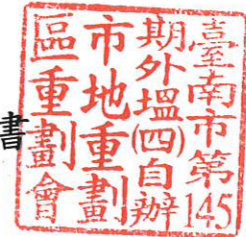 臺南市第145
期外塭(四)自辦
市地重劃
區重劃會
書